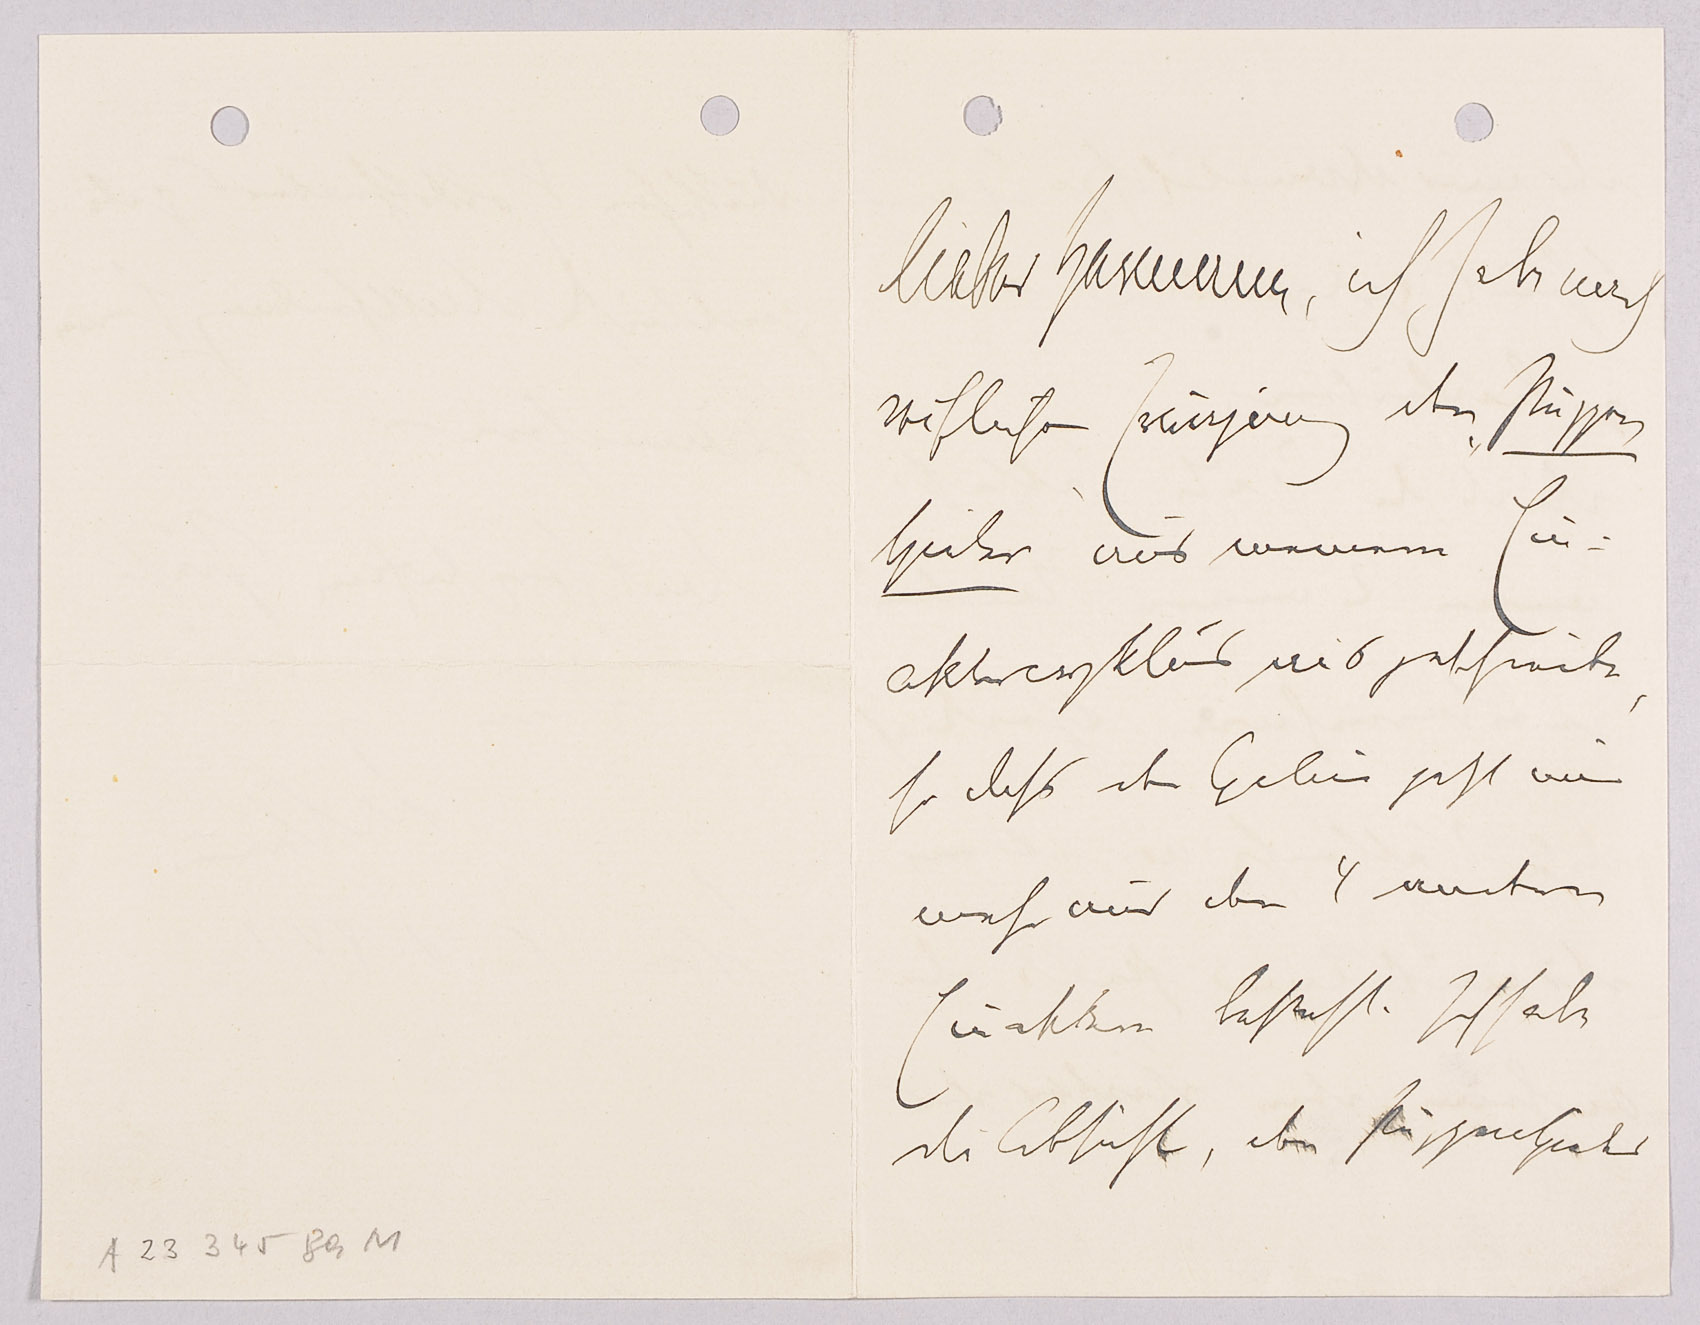 lieber Hermann, ich habe nach
reiflicher Erwägung den „Puppen
spieler“ aus meinem Ein-
aktercyklus ausgeschieden,
so daß der Cyclus jetzt nur
mehr aus den 4 andern
Einaktern besteht. Ich habe
die Absicht, den Puppenspieler
A 23 345 Ba M